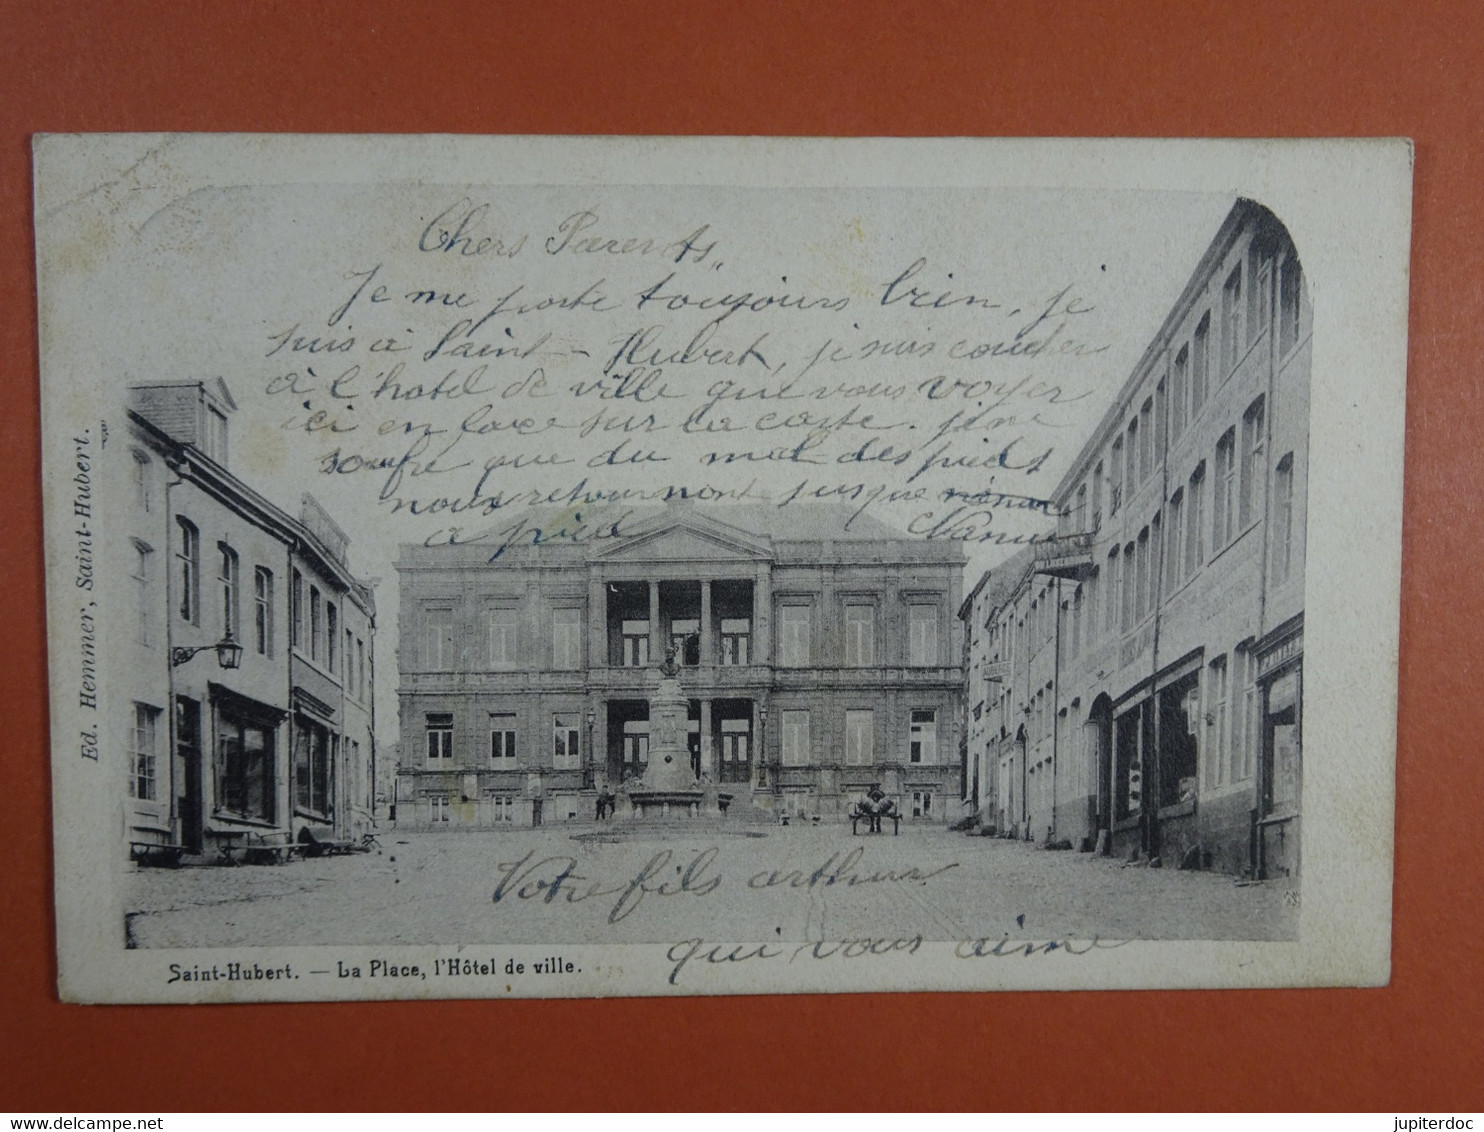 Chers Parents,,
Je me porte toujours bien, je
suis à Saint-Hubert, je suis coucher
à l'hotel de ville que vous voyer
ici en face sur la carte. je ne
soufre que du mal des pieds
nous retournont jusque
a pied
Votre fils arthur
qui vous aime
Saint-Hubert. — La Place, l'Hôtel de ville.
Ed. Hemmer, Saint-Hubert.
jupiterdoc